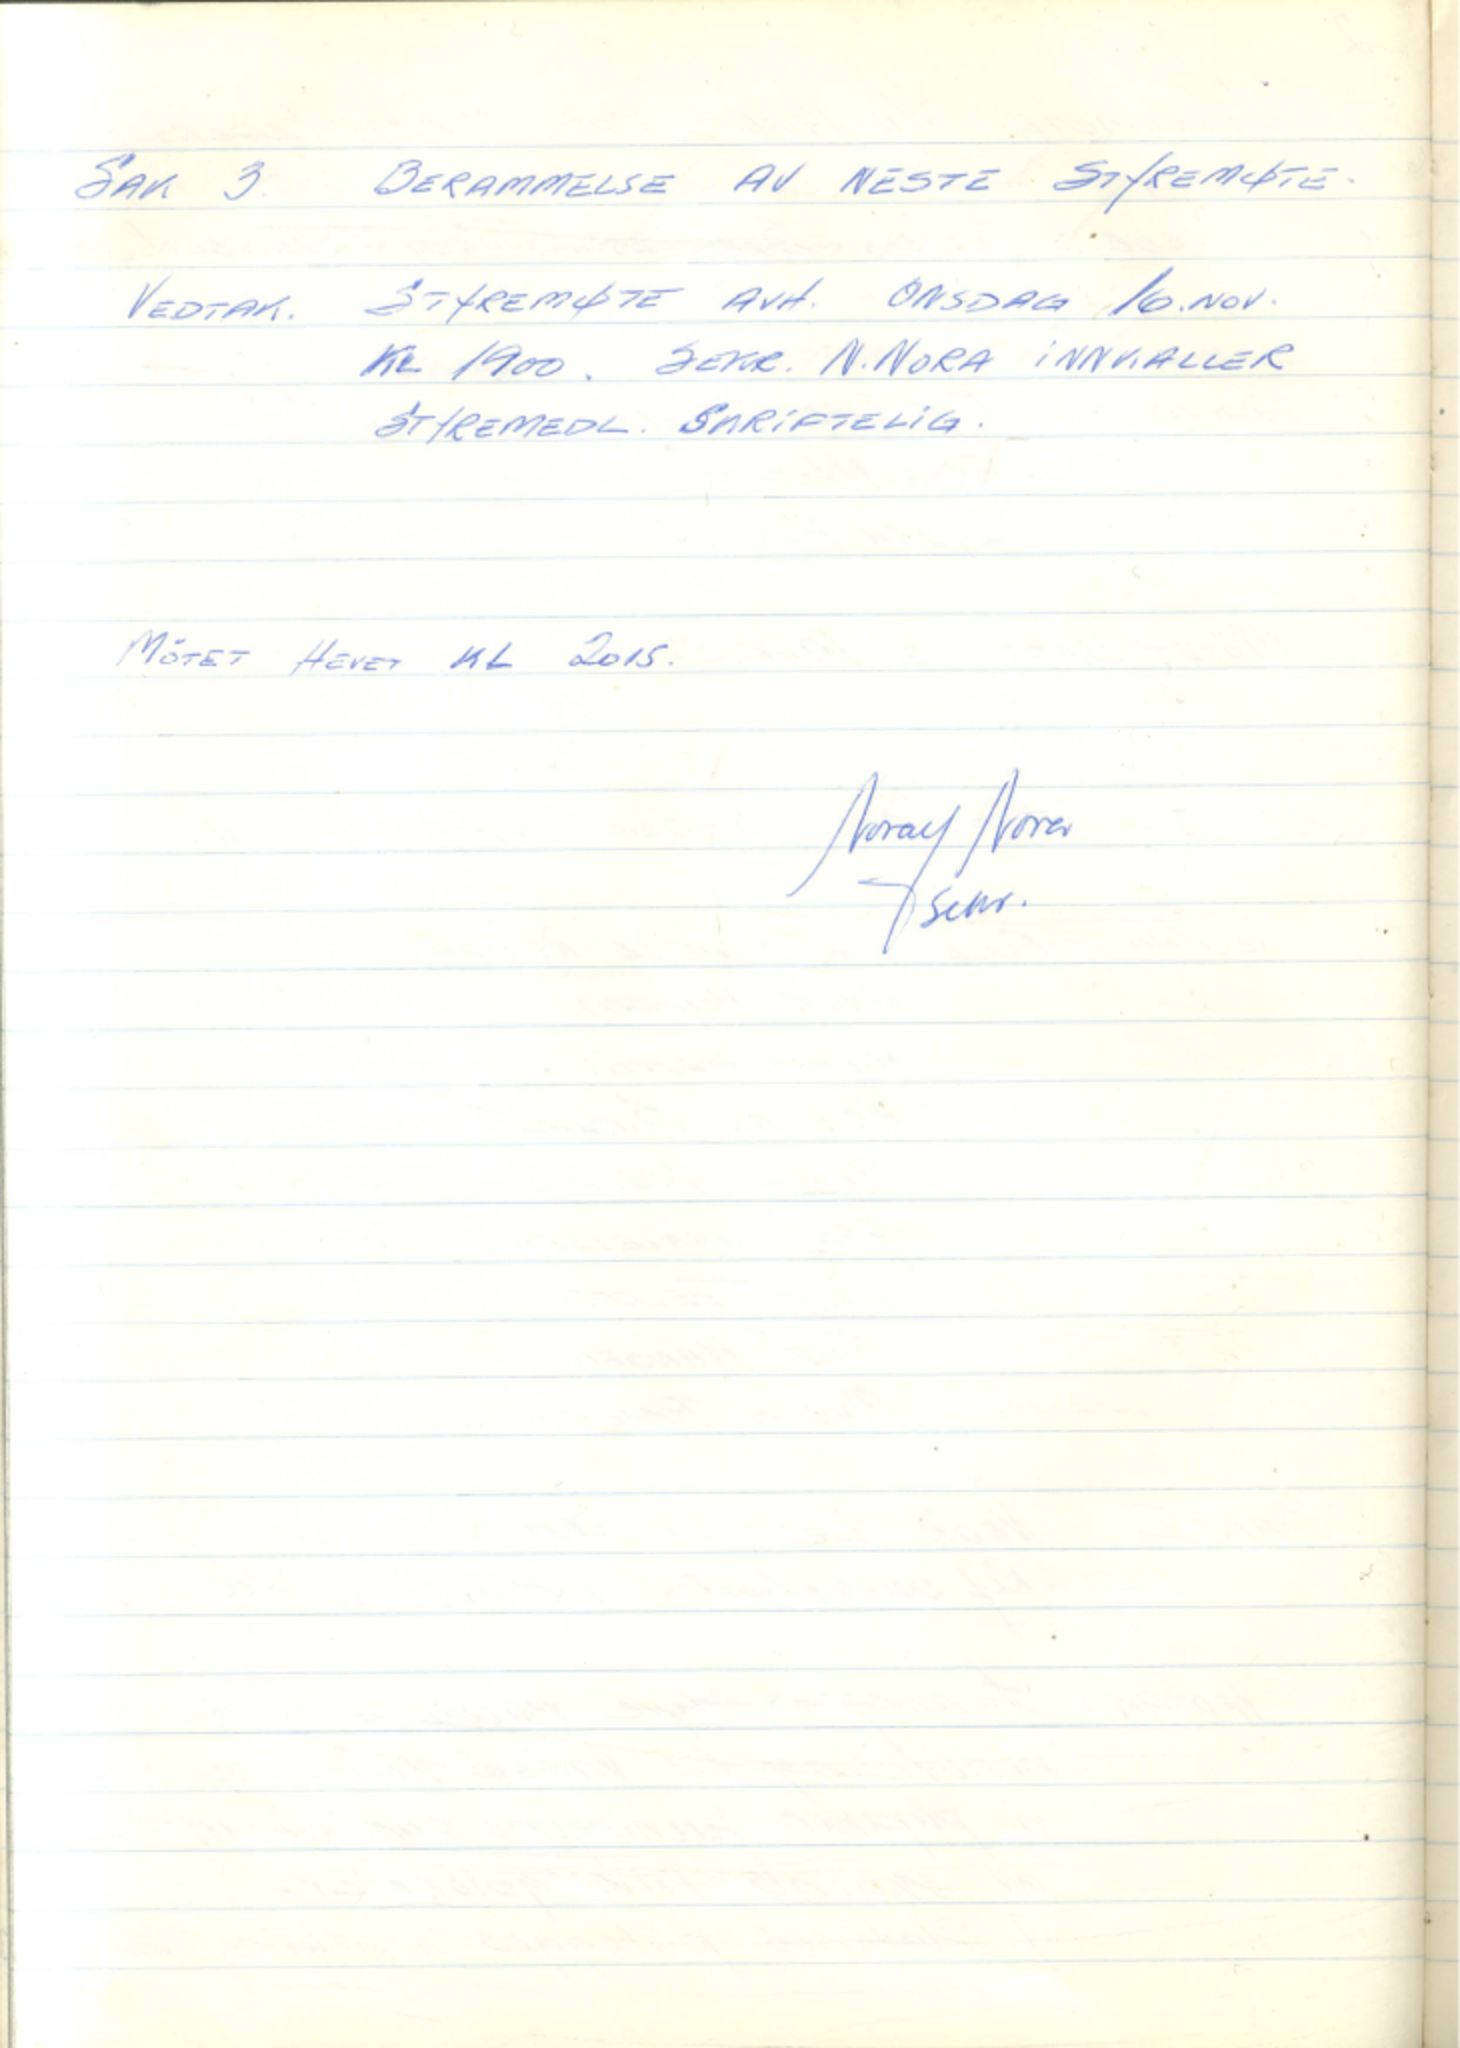 SAK 3. BERAMMELSE AV NESTE STYREMØTE.
VEDTAK. STYREMØTE AVH. ONSDAG 16.NOV.
KL 1900. SEKR. N.NORA INNKALLER
STYREMEDL. SKRIFTELIG.
MÖTET HEVET KL 2015.
Nora
sekr.